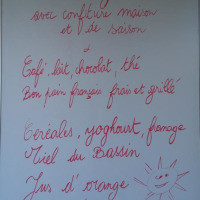 avec confiture maison
et de saison
Café lait, chocolat, thé
Bon pain français frais et grillé
Céréales, yoghourt, fromage
Miel du Bassin
Jus d'orange